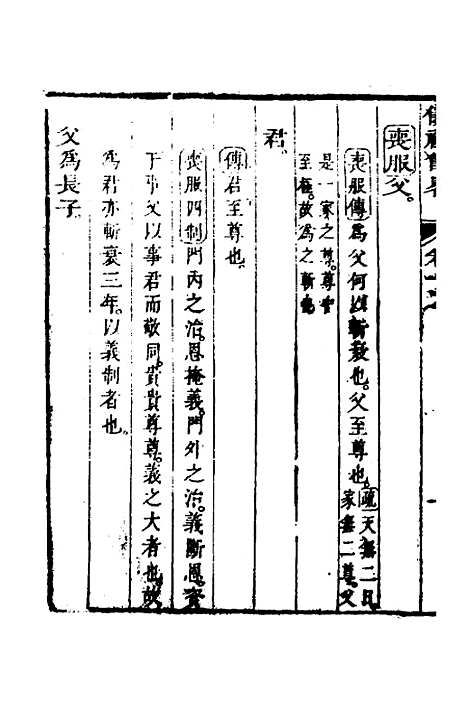 喪服父。
喪服傳爲父何以斬衰也。父至尊也。疏天無二日
家無二尊父
是一家之尊。尊中
至極。故爲之斬也
君。
傳君至尊也。
喪服四制門内之治。恩掩義。門外之治。義斷恩。資
于事父以事君而敬同。貴貴尊尊。義之大者也。故
爲君亦斬衰三年。以義制者也。
父爲長子